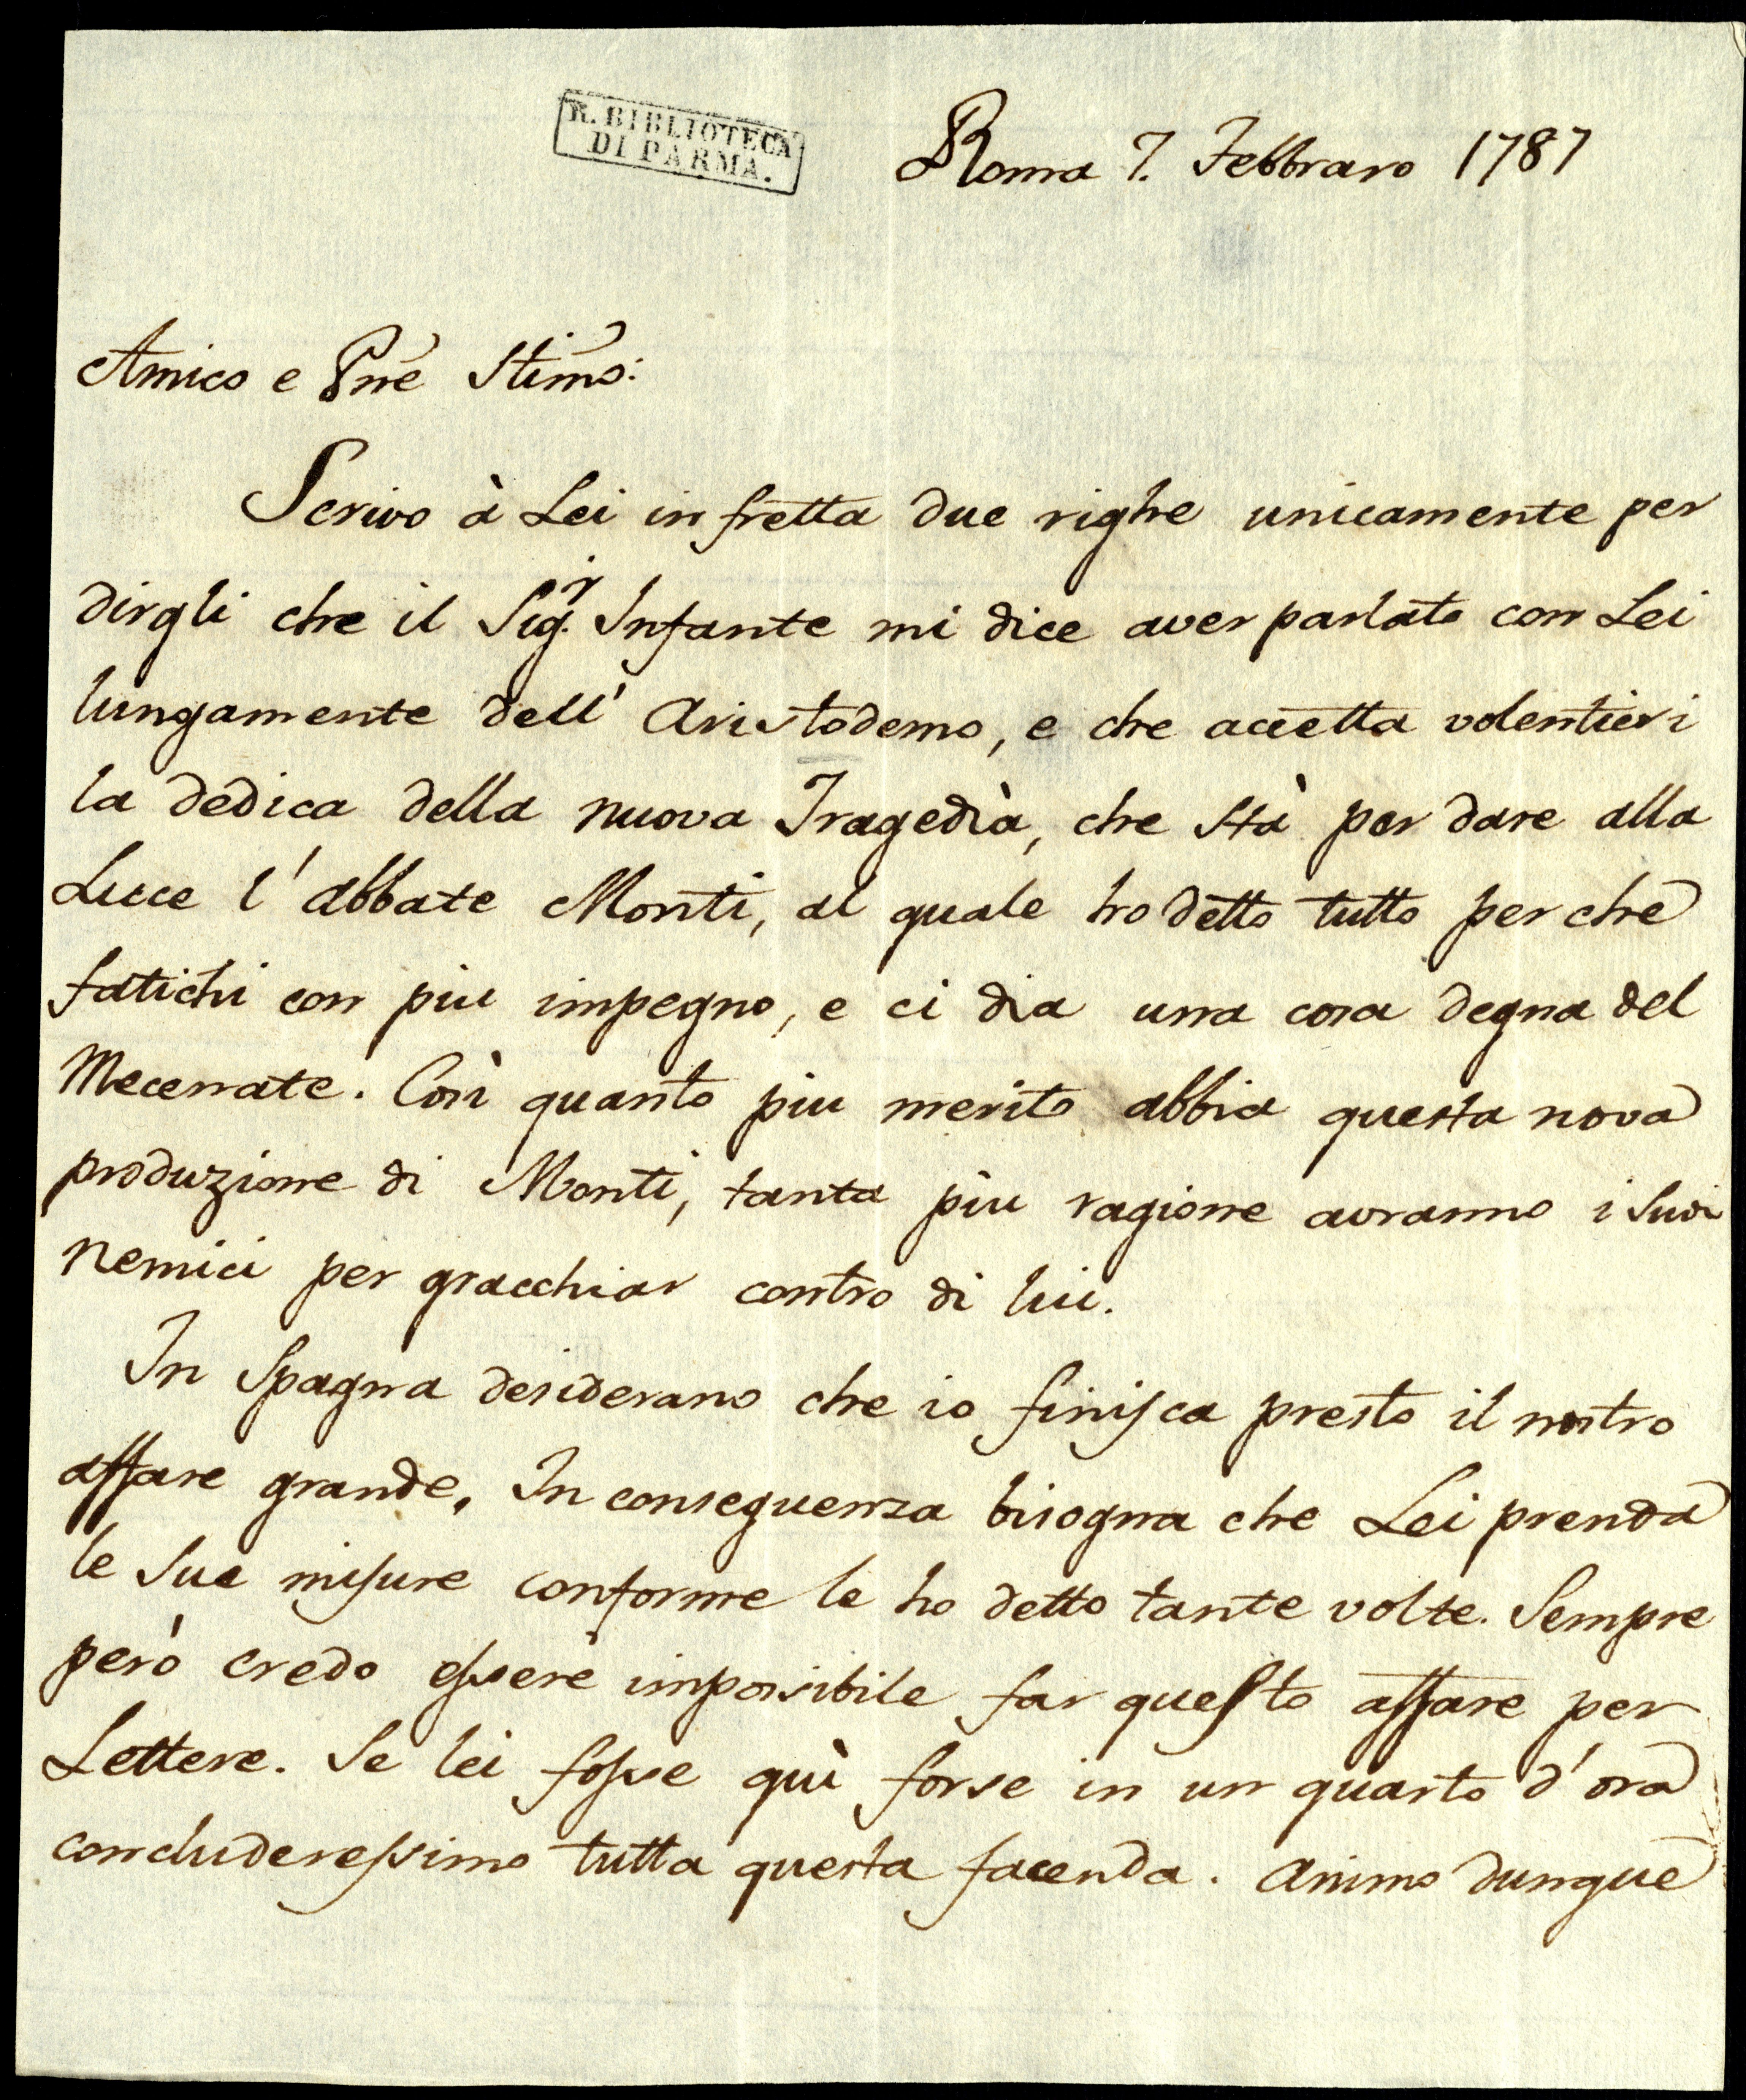 R. BIBLIOTECA
DI PARMA.
Roma 7. Febbraro 1787
Amico e Pne Stimo:
Scrivo à Lei in fretta due righe unicamente per
dirgli che il Sigr. Infante mi dice aver parlato con Lei
lungamente dell' Aristodemo, e che accetta volentieri
la dedica della nuova Tragedià, che stà per dare alla
Luce l' abbate Monti, al quale ho detto tutto perche
fatichi con piu impegno, e ci dia una cosa degna del
Mecenate. Cosi quanto piu merito abbia questa nova
produzione di Monti, tanta piu ragione avranno i suoi
nemici per gracchiar contro di lui.
In Spagna desiderano che io finisca presto il nostro
affare grande. In conseguenza bisogna che Lei prenda
le sue misure conforme le ho detto tante volte. Sempre
però credo essere impossibile far questo affare per
Lettere. Se lei fosse quì forse in un quarto d' ora
concluderessimo tutta questa facenda. Animo dunque